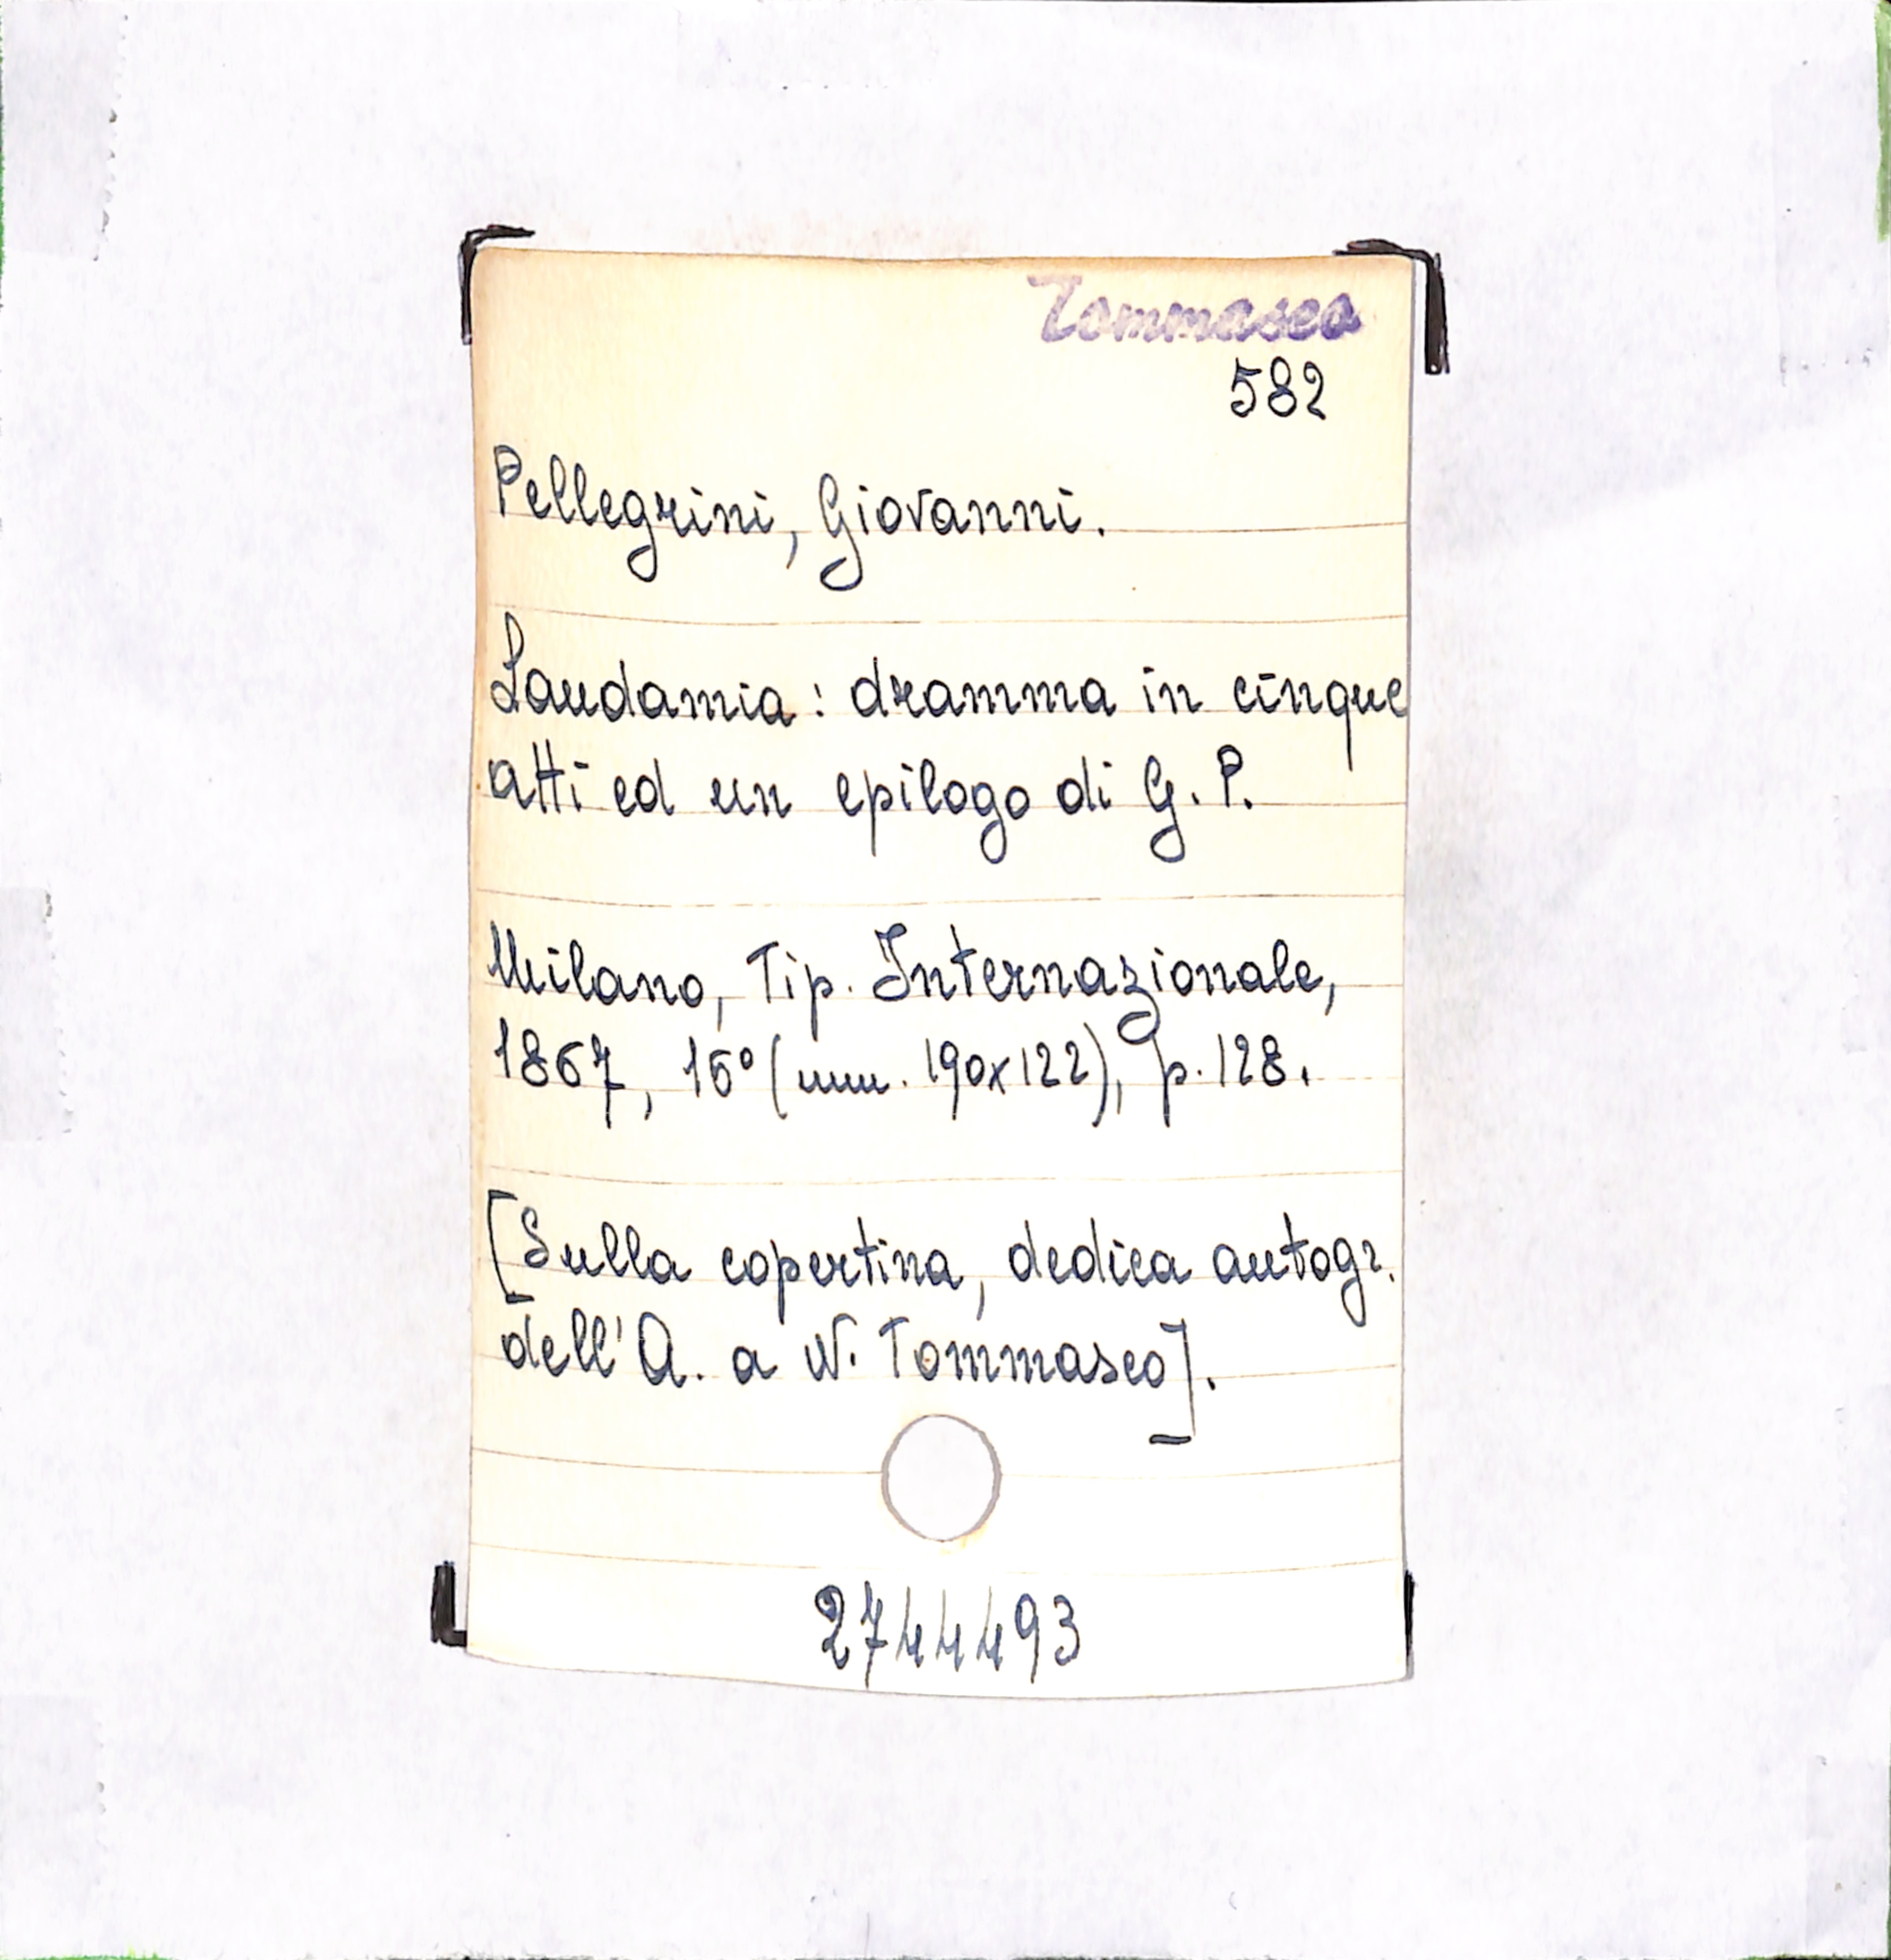 Tommaseo
582
Pellegrini, Giovanni.
Laudamia: dramma in cinque
atti ed un epilogo di G. P.
Milano, Tip. Internazionale,
1867, 16° (mm. 190x122), p. 128.
[Sulla copertina, dedica autogr.
dell'A. a N. Tommaseo].
2744493